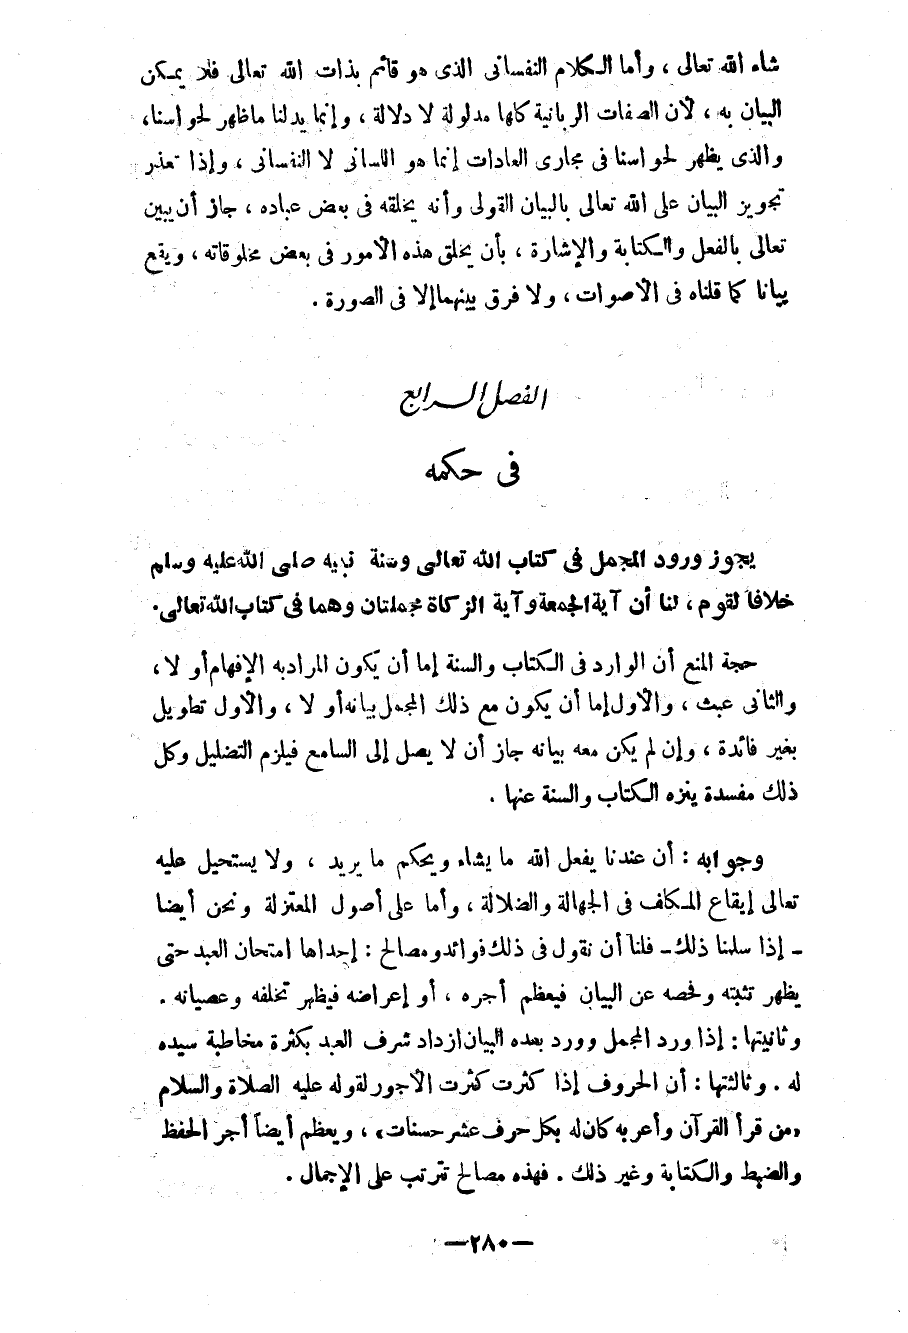 شاء الله تعالى ، وأما الكلام النفسانى الذى هو قائم بذات الله تعالى فلا يمكن
البيان به ، لأن الصفات الربانية كلها مدلولة لا دلالة ، وإنما يدلنا ماظهر لحواسنا،
والذى يظهر لحواسنا فى مجارى العادات إنما هو اللسانى لا النفسانى ، وإذا تعذر
تجويز البيان على الله تعالى بالبيان القولى وأنه يخلقه فى بعض عباده ، جاز أن يبين
تعالى بالفعل والكتابة والإشارة ، بأن يخلق هذه الأمور فى بعض مخلوقاته ، ويقع
بيانا كما قلناه فى الأصوات ، ولا فرق بينهما إلا فى الصورة .
الفصل الرابع
فى حكمه
يجوز ورود المجمل فى كتاب الله تعالى وسنة نبيه صلى الله عليه وسلم
خلافاً لقوم ، لنا أن آية الجمعة وآية الزكاة مجملتان وهما فى كتاب الله تعالى .
حجة المنع أن الوارد فى الكتاب والسنة إما أن يكون المراد به الإفهام أو لا ،
والثانى عبث ، والأول إما أن يكون مع ذلك المجمل بيانه أو لا ، والأول تطويل
بغير فائدة ، وإن لم يكن معه بيانه جاز أن لا يصل إلى السامع فيلزم التضليل وكل
ذلك مفسدة ينزه الكتاب والسنة عنها .
وجوابه : أن عندنا يفعل الله ما يشاء ويحكم ما يريد ، ولا يستحيل عليه
تعالى إيقاع المكلف فى الجهالة والضلالة ، وأما على أصول المعتزلة ونحن أيضا
- إذا سلمنا ذلك - فلنا أن نقول فى ذلك فوائد ومصالح : إحداها امتحان العبد حتى
يظهر تثبته وفحصه عن البيان فيعظم أجره ، أو إعراضه فيظهر تخلفه وعصيانه .
وثانيتها : إذا ورد المجمل وورد بعده البيان ازداد شرف العبد بكثرة مخاطبة سيده
له . وثالثتها : أن الحروف إذا كثرت كثرت الأجور لقوله عليه الصلاة والسلام
«من قرأ القرآن وأعربه كان له بكل حرف عشر حسنات» ، ويعظم أيضاً أجر الحفظ
والضبط والكتابة وغير ذلك . فهذه مصالح تترتب على الإجمال .
— ٢٨٠ —